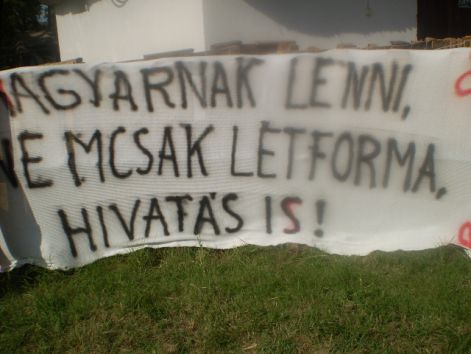 MAGYARNAK LENNI,
NE MCSAK LÉTFORMA,
HIVATÁS IS!